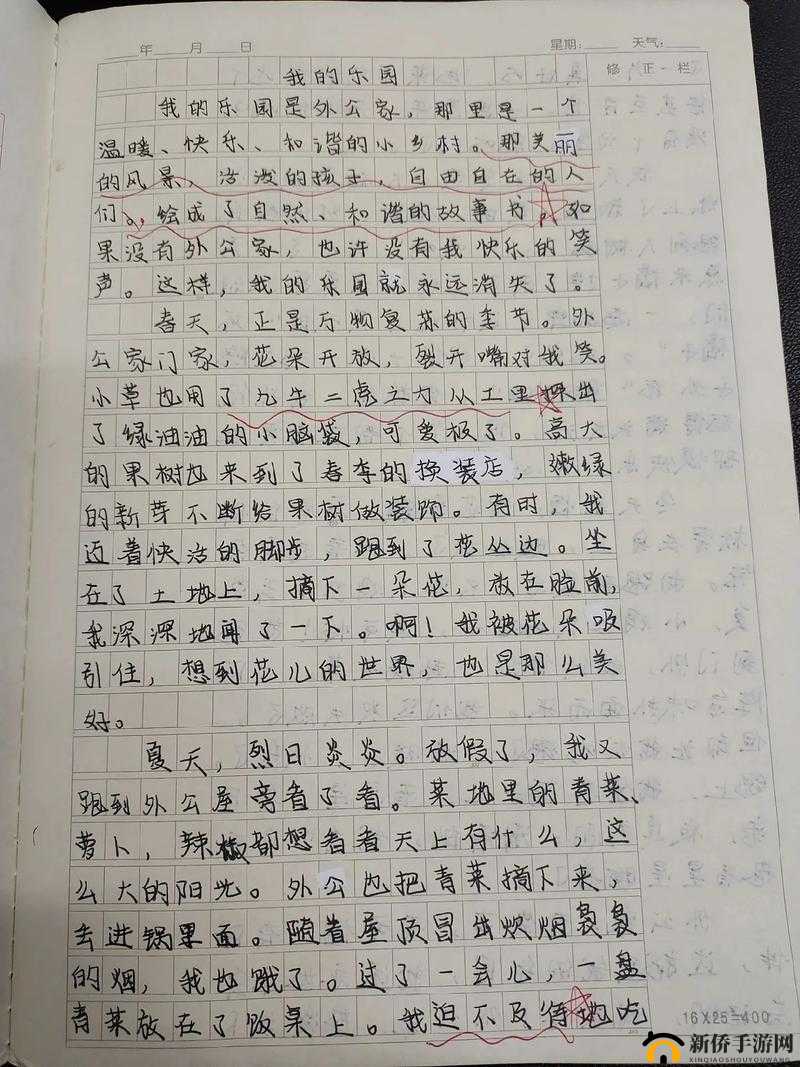 年 月 日 星期: 天气:
修 正 栏
我的乐园
我的乐园是外公家，那里是一个
温暖、快乐、和谐的小乡村。那美丽
的风景，活泼的孩子，自由自在的人
们。，绘成了自然、和谐的故事书。如
果没有外公家，也许没有我快乐的笑
声。这样，我的乐园就永远消失了。
春天，正是万物复苏的季节。外
公家门家，花朵开放，裂开嘴对我笑。
小草也用了九牛二虎之力从土里探出
了绿油油的小脑袋，可爱极了。高大
的果树也来到了春季的换装店，嫩绿
的新芽不断给果树做装饰。有时，我
迈着快活的脚步，跑到了花丛边。坐
在了土地上，摘下一朵花，放在脸前，
我深深地闻了一下。啊！我被花朵吸
引住，想到花儿的世界，也是那么美
好。
夏天，烈日炎炎。放假了，我又
跑到外公屋旁看了看。菜地里的青菜、
萝卜，辣椒都想看看天上有什么，这
么大的阳光。外公也把青菜摘下来，
去进锅里面。随着屋顶冒出炊烟袅袅
的烟，我也饿了。过了一会儿，一盘
青菜放在了饭桌上。我迫不及待地吃
16X25=400
新侨手游网
XINQIAOSHOUYOUWANG